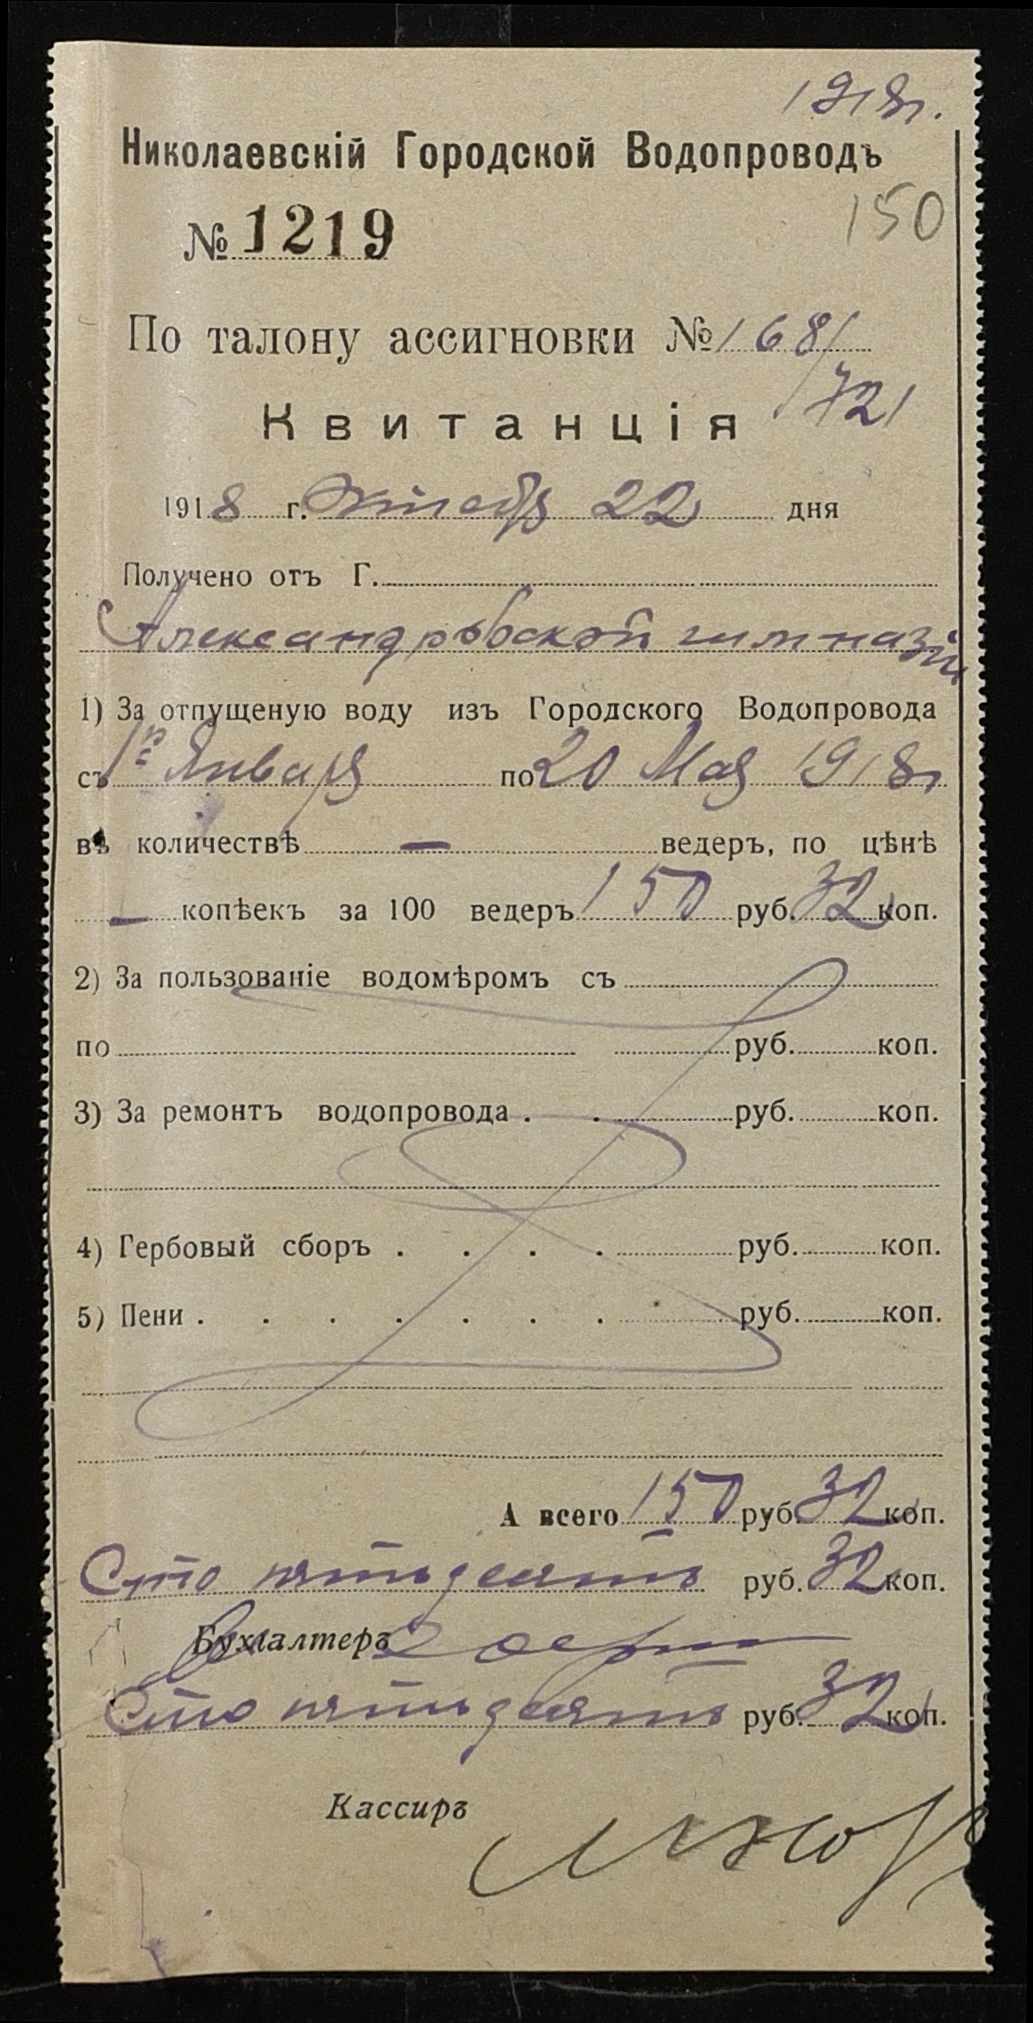 1918г.
Николаевскій Городской Водопроводъ
150
№ 1219
По талону ассигновки № 1681/721
Квитанція
1918 г. Октября 22 дня
Получено отъ Г.
Александровской гимназіи
1) За отпущеную воду изъ Городского Водопровода
съ 1го Января по 20 Мая 1918г
въ количествѣ — ведеръ, по цѣнѣ
— копѣекъ за 100 ведеръ 150 руб. 32 коп.
2) За пользованіе водомѣромъ съ
по руб. коп.
3) За ремонтъ водопровода . . руб. коп.
4) Гербовый сборъ . . . . руб. коп.
5) Пени . . . . . . . руб. коп.
А всего 150 руб. 32 коп.
Сто пятьдесятъ руб. 32 коп.
Бухгалтеръ
Сто пятьдесятъ руб. 32 коп.
Кассиръ